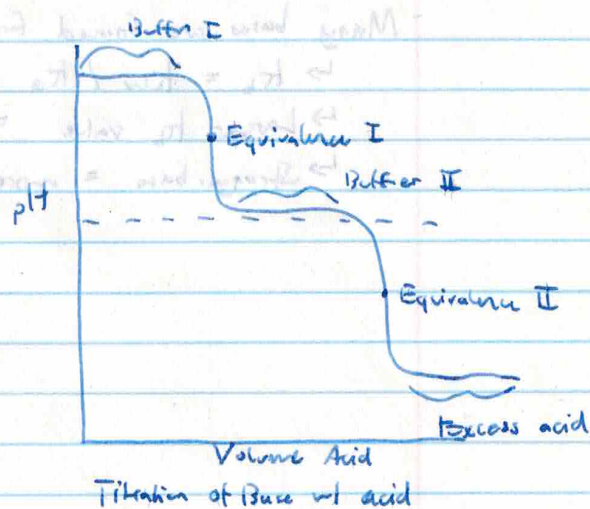 Buffer I
Equivalence I
Buffer II
pH
Equivalence II
Excess acid
Volume Acid
Titration of Base w/ acid